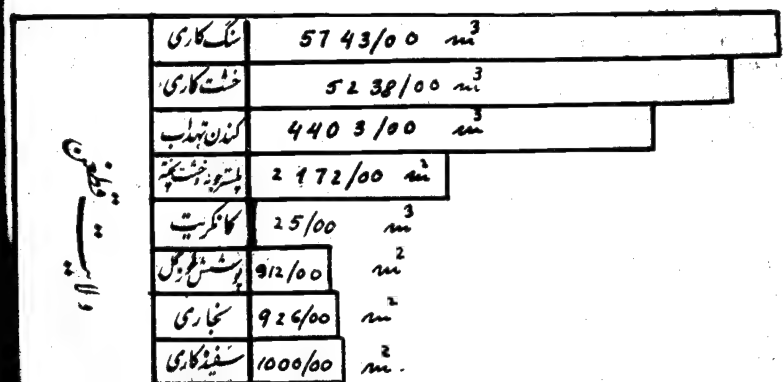 سنگ کاری 5743/00 m³
خشت کاری 5238/00 m³
کندن تهداب 4403/00 m³
پلستر چونه و خشت پخته 2172/00 m²
کانکریت 25/00 m³
پوشش 912/00 m²
نجاری 926/00 m²
سفیدکاری 1000/00 m².
ولایت